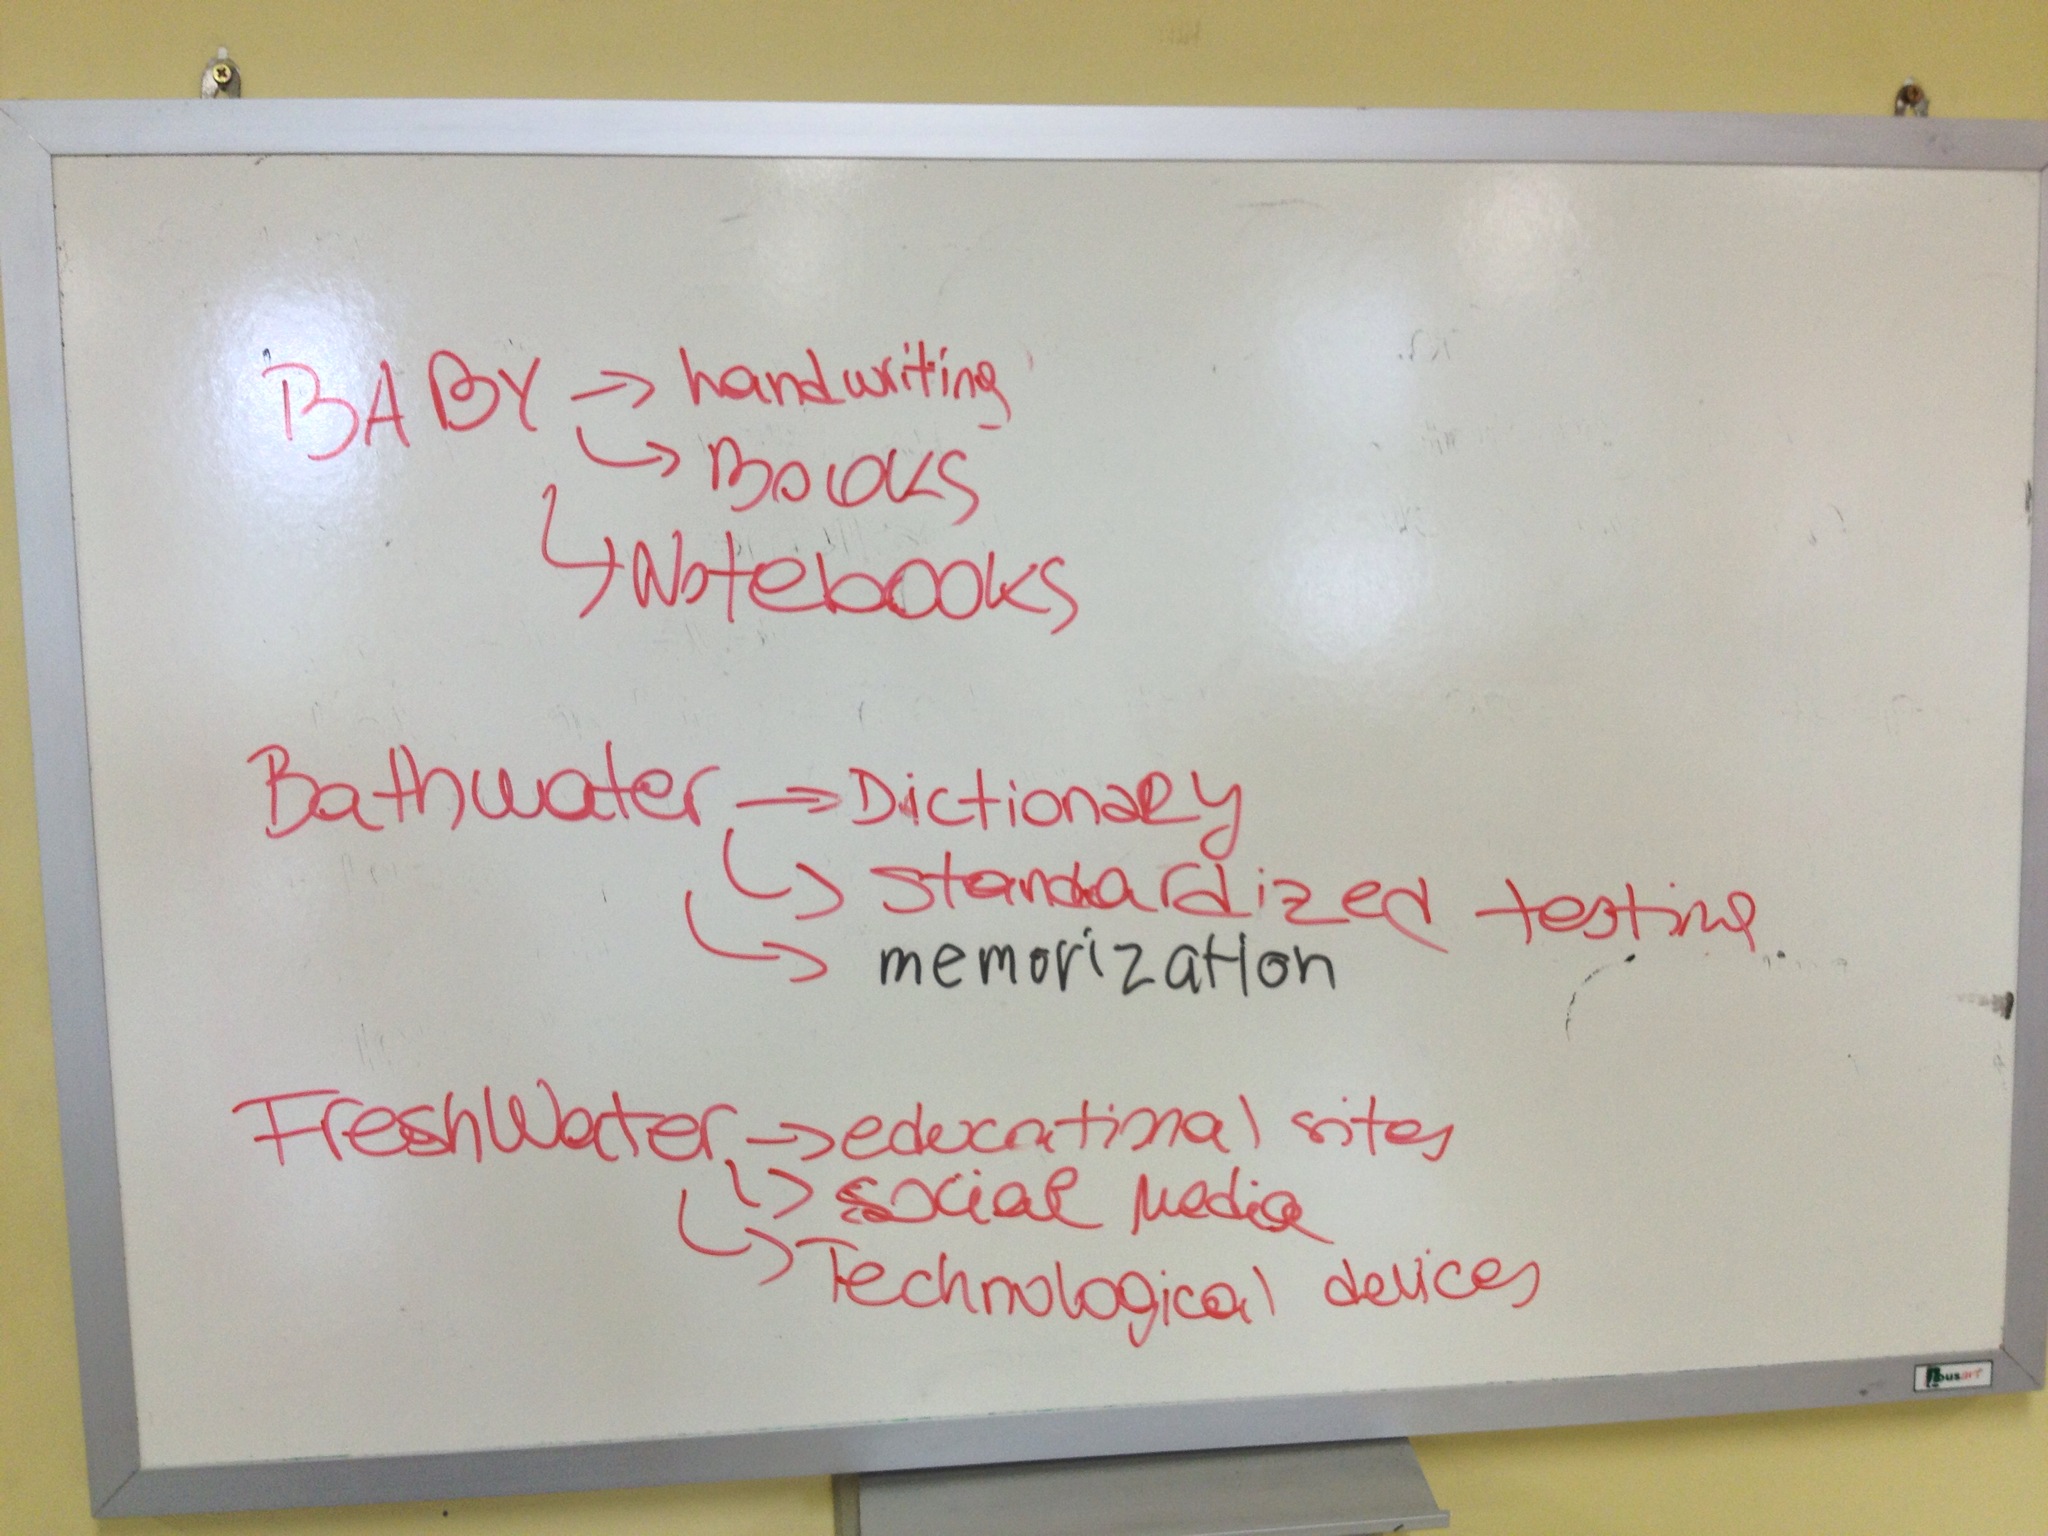 BABY → handwriting
↳ Books
↳ Notebooks
Bathwater → Dictionary
↳ standardized testing.
↳ memorization
FreshWater → educational sites
↳ social Media
↳ Technological devices